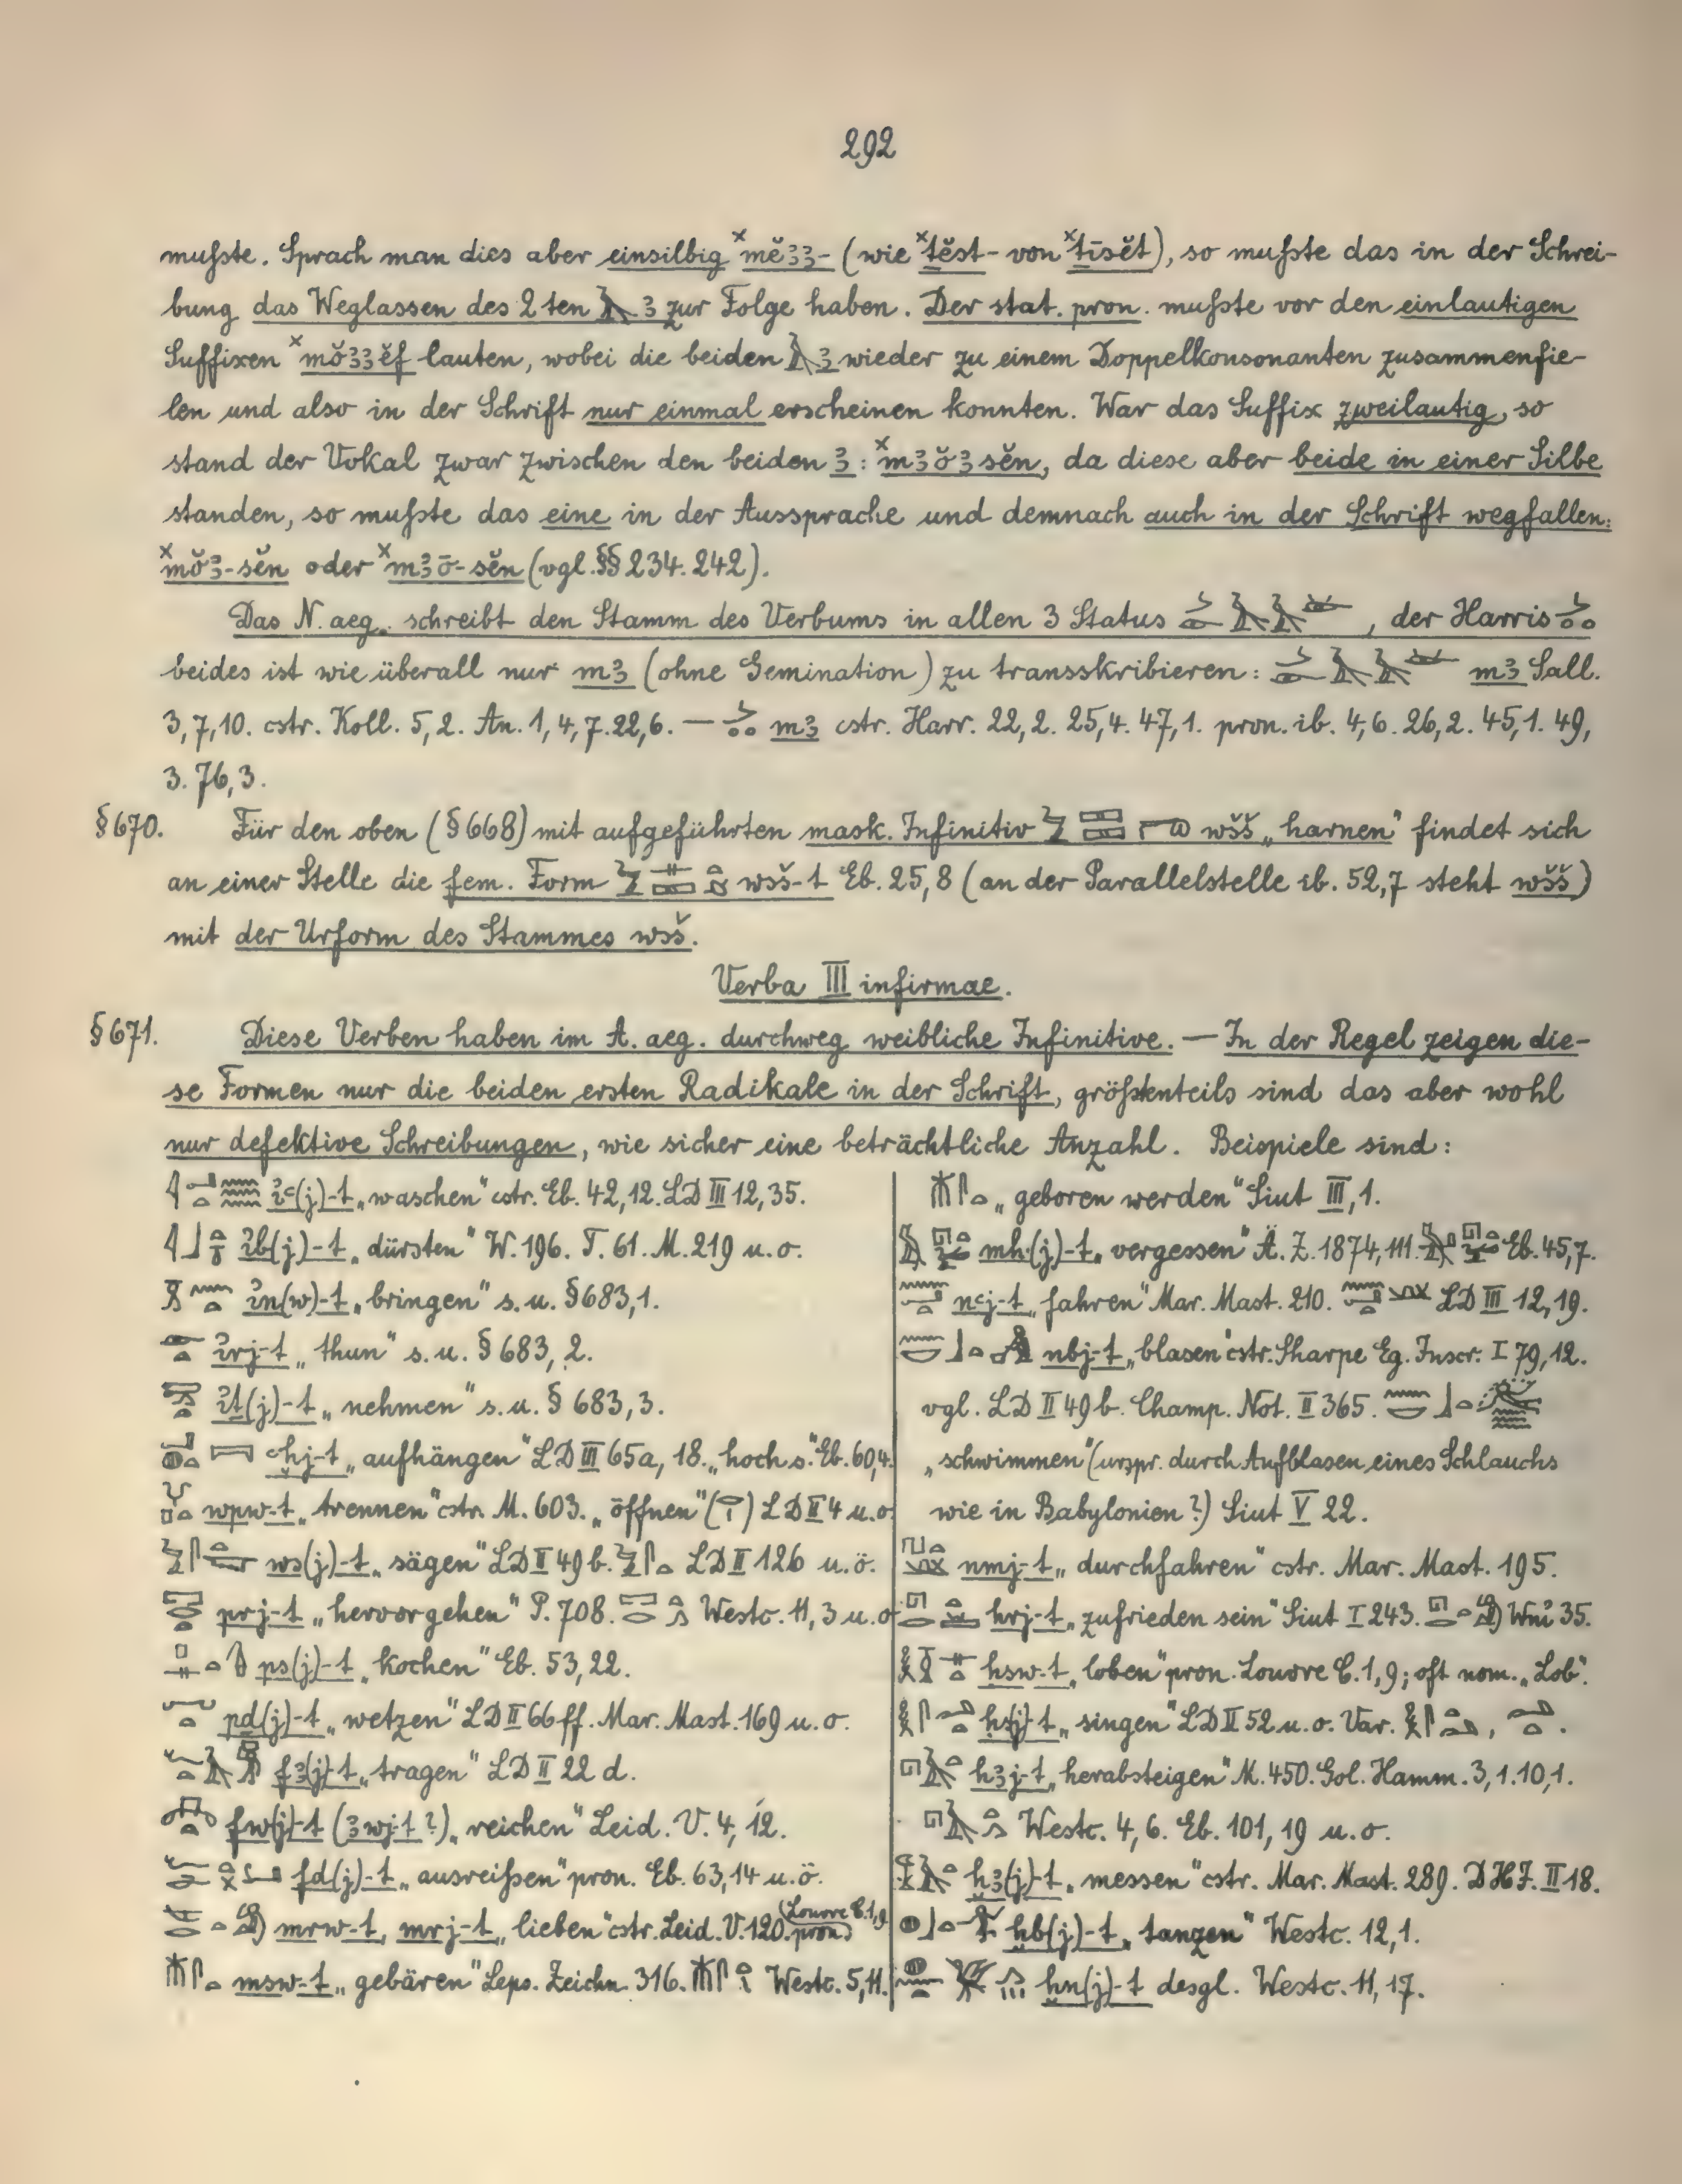 292
mußte. Sprach man dies aber einsilbig ×mĕꜣꜣ- (wie ×ṯĕst- von ×ṯīsĕt), so mußte das in der Schrei-
bung das Weglassen des 2ten 𓄿 ꜣ zur Folge haben. Der stat. pron. mußte vor den einlautigen
Suffixen ×mŏꜣꜣĕf lauten, wobei die beiden 𓄿 ꜣ wieder zu einem Doppelkonsonanten zusammenfie-
len und also in der Schrift nur einmal erscheinen konnten. War das Suffix zweilautig, so
stand der Vokal zwar zwischen den beiden ꜣ: ×mꜣŏꜣsĕn, da diese aber beide in einer Silbe
standen, so mußte das eine in der Aussprache und demnach auch in der Schrift wegfallen:
×mŏꜣ-sĕn oder ×mꜣō-sĕn (vgl. §§ 234. 242).
Das N. aeg. schreibt den Stamm des Verbums in allen 3 Status 𓌳𓄿𓄿, der Harris
beides ist wie überall nur mꜣ (ohne Gemination) zu transskribieren: 𓌳𓄿𓄿 mꜣ Sall.
3,7,10. cstr. Koll. 5,2. An. 1,4,7. 22,6. — mꜣ cstr. Harr. 22,2. 25,4. 47,1. pron. ib. 4,6. 26,2. 45,1. 49,
3. 76,3.
§670. Für den oben (§668) mit aufgeführten mask. Infinitiv wšš „harnen" findet sich
an einer Stelle die fem. Form wsš-t Eb. 25,8 (an der Parallelstelle ib. 52,7 steht wšš)
mit der Urform des Stammes wsš.
Verba III infirmae.
§671. Diese Verben haben im A. aeg. durchweg weibliche Infinitive. — In der Regel zeigen die-
se Formen nur die beiden ersten Radikale in der Schrift, größtenteils sind das aber wohl
nur defektive Schreibungen, wie sicher eine beträchtliche Anzahl. Beispiele sind:
ꞽꜥ(j)-t „waschen" cstr. Eb. 42,12. LD III 12,35.
ꞽb(j)-t „dürsten" W. 196. T. 61. M. 219 u. o.
ꞽn(w)-t „bringen" s. u. §683,1.
ꞽrj-t „thun" s. u. § 683, 2.
ꞽṯ(j)-t „nehmen" s. u. § 683, 3.
ꜥḫj-t „aufhängen" LD III 65a, 18. „hoch s." Eb. 60,4.
wpw-t „trennen" cstr. M. 603. „öffnen" LD II 4 u. o.
ws(j)-t „sägen" LD II 49b. LD II 126 u. ö.
prj-t „hervorgehen" P. 708. Westc. 11, 3 u. o.
ps(j)-t „kochen" Eb. 53,22.
pd(j)-t „wetzen" LD II 66ff. Mar. Mast. 169 u. o.
fꜣ(j)-t „tragen" LD II 22 d.
fw(j)-t (ꜣwj-t?) „reichen" Leid. V. 4, 12.
fd(j)-t „ausreißen" pron. Eb. 63,14 u. ö.
mrw-t, mrj-t „lieben" cstr. Leid. V. 120. pron. Louvre C. 1,9
msw-t „gebären" Leps. Zeichn. 316. Westc. 5,11.
„geboren werden" Siut III, 1.
mh(j)-t „vergessen" Ä. Z. 1874, 111. Eb. 45,7.
nꜥj-t „fahren" Mar. Mast. 210. LD III 12,19.
nbj-t „blasen" cstr. Sharpe Eg. Inscr. I 79,12.
vgl. LD II 49b. Champ. Not. II 365.
„schwimmen" (urspr. durch Aufblasen eines Schlauchs
wie in Babylonien?) Siut V 22.
nmj-t „durchfahren" cstr. Mar. Mast. 195.
hrj-t „zufrieden sein" Siut I 243. Wnꞽ 35.
ḥsw-t „loben" pron. Louvre C. 1,9; oft nom. „Lob".
ḥsj-t „singen" LD II 52 u. o. Var.
hꜣj-t „herabsteigen" M. 450. Gol. Hamm. 3,1. 10,1.
Westc. 4,6. Eb. 101,19 u. o.
ḫꜣ(j)-t „messen" cstr. Mar. Mast. 289. DHJ. II 18.
ḫb(j)-t „tanzen" Westc. 12,1.
ḫn(j)-t desgl. Westc. 11,17.